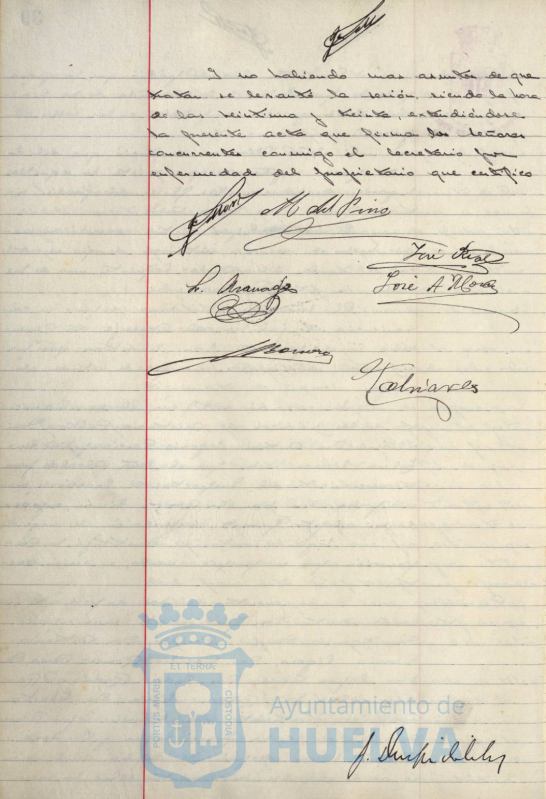 Y no habiendo mas asuntos de que
tratar se levantó la sesión, siendo la hora
de las veintiuna y treinta, extendiéndose
la presente acta que firman los Señores
concurrentes conmigo el Secretario por
enfermedad del propietario que certifico
M del Pino
José Real
José A
PORTUS MARIS
ET TERRÆ
CUSTODIA
Ayuntamiento de
HUELVA